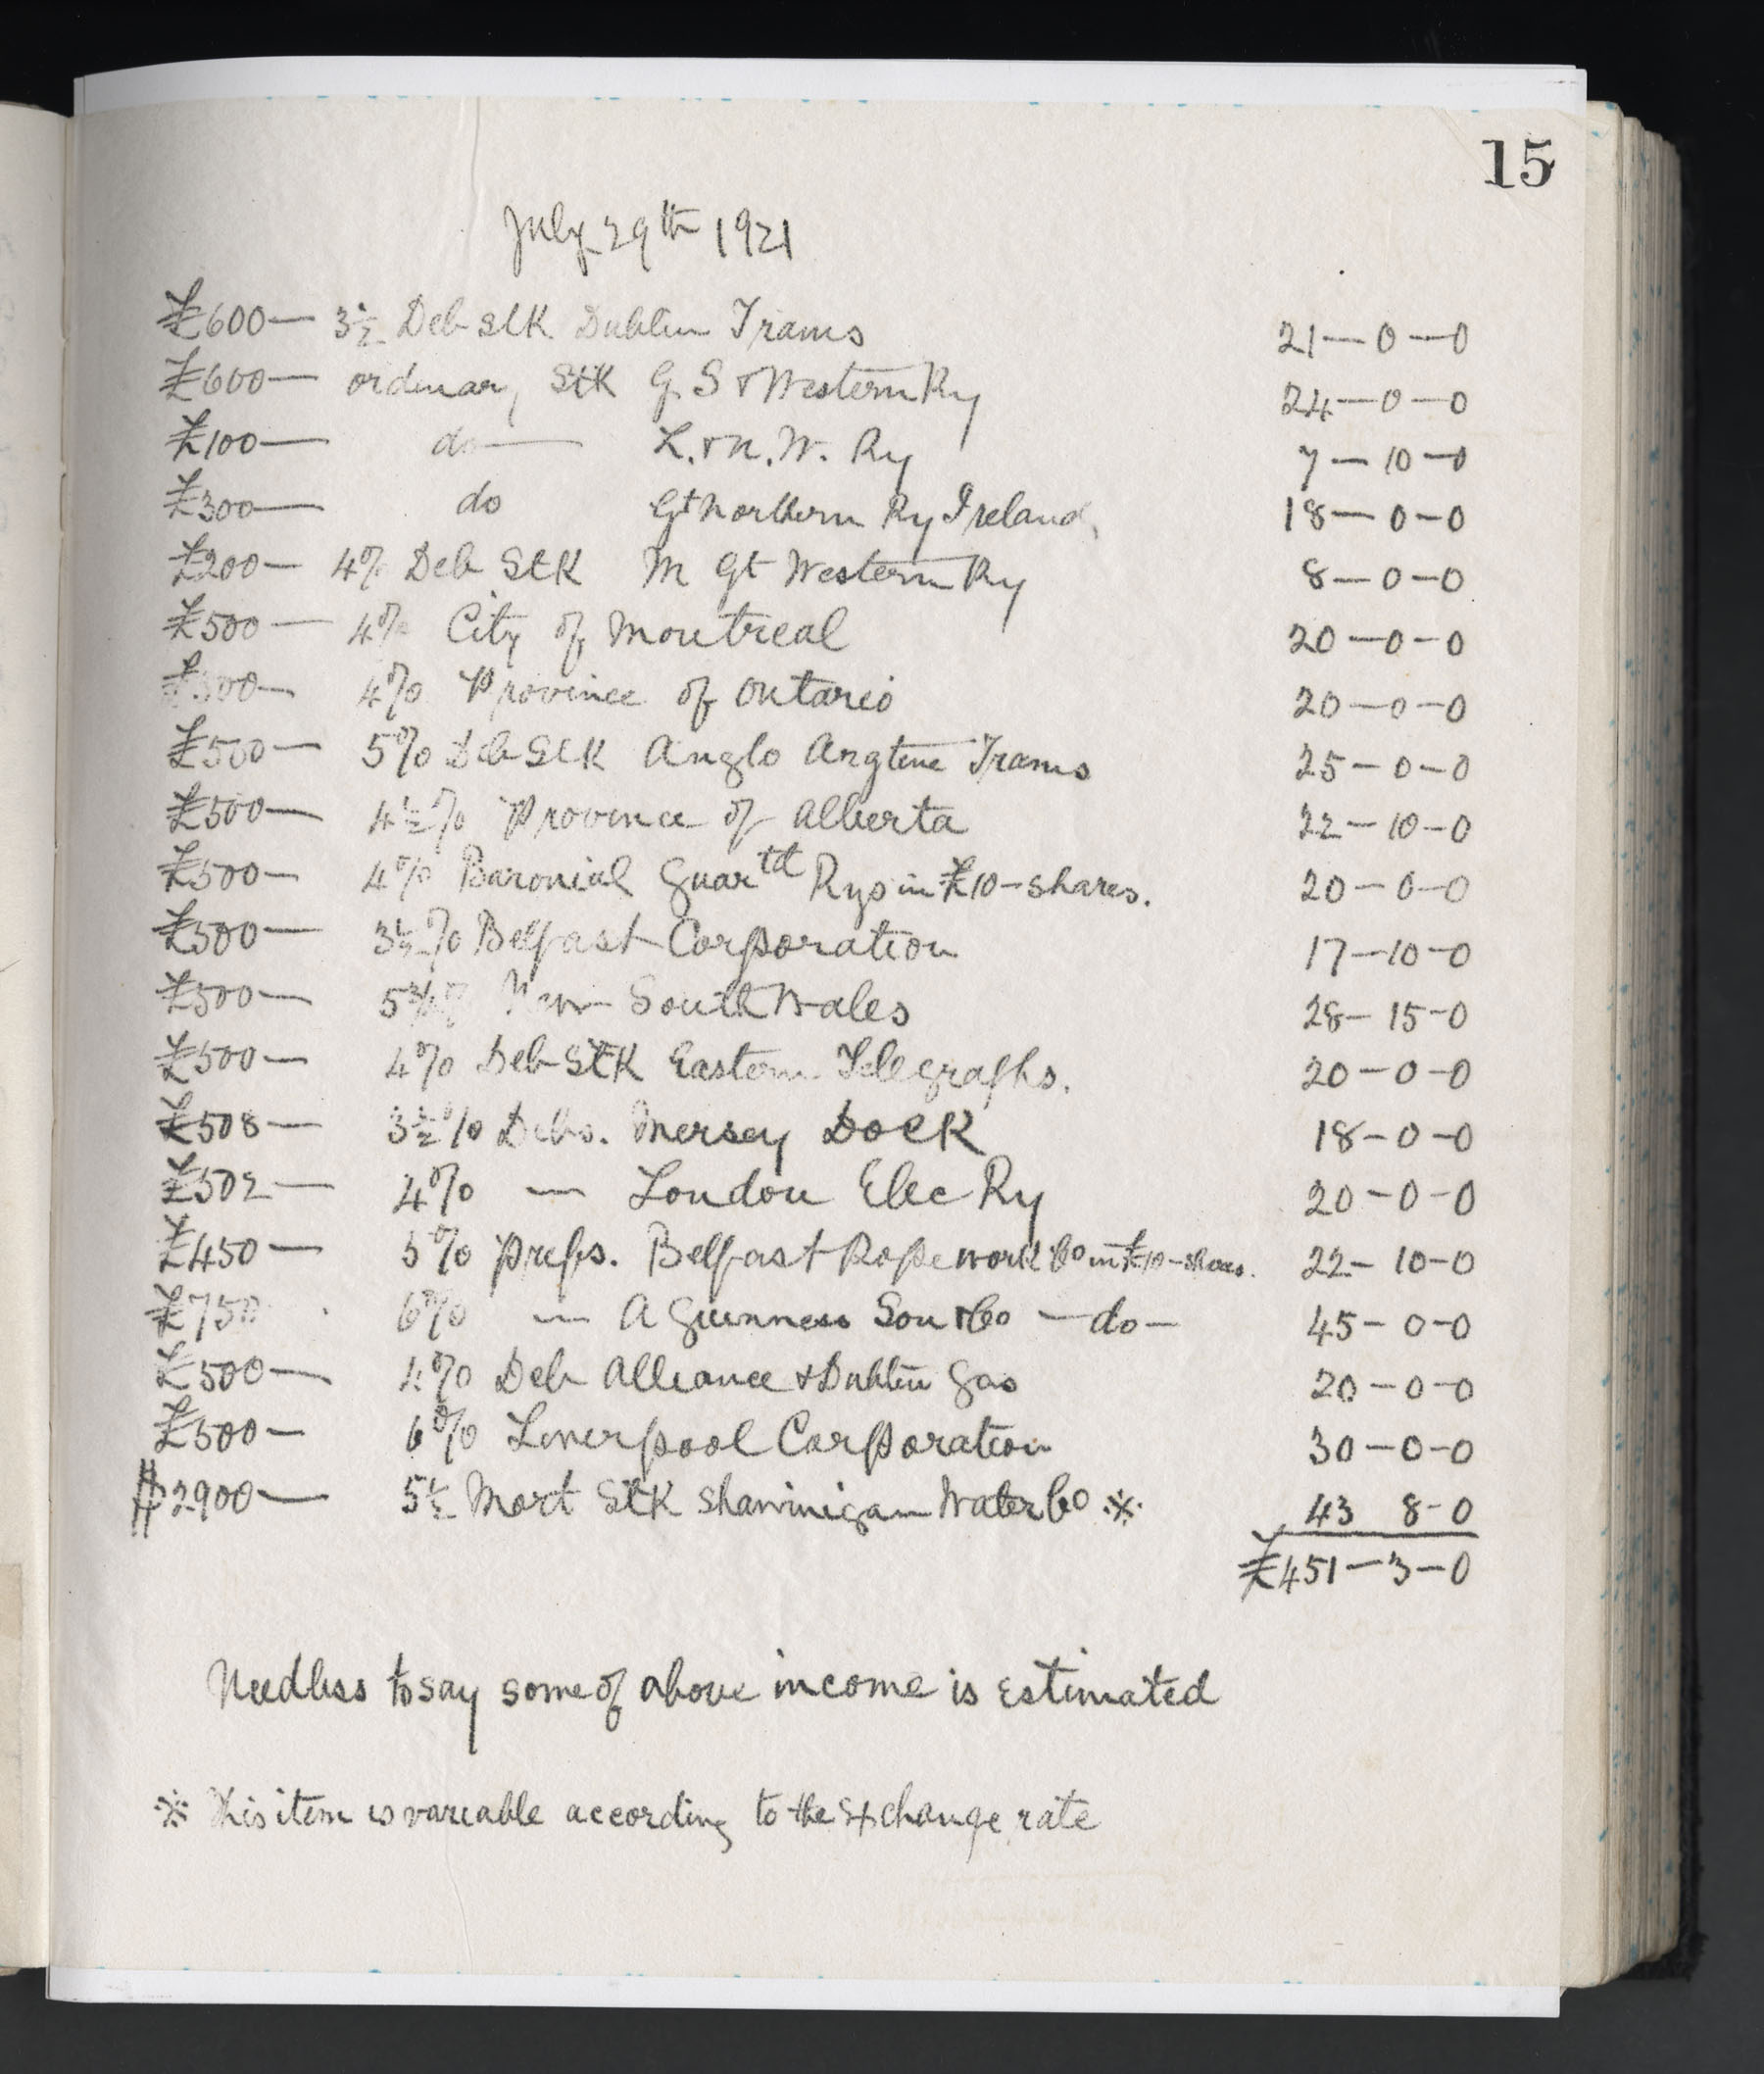 15
July 29th 1921
£600— 3½ Deb Stk Dublin Trams 21—0—0
£600— ordinary Stk G. S & Western Ry 24—0—0
£100— do— L. & N. W. Ry 7—10—0
£300— do Gt Northern Ry Ireland, 18—0—0
£200— 4% Deb Stk M Gt Western Ry 8—0—0
£500— 4% City of Montreal 20—0—0
£500— 4% Province of Ontario 20—0—0
£500— 5% Deb Stk Anglo Argtine Trams 25—0—0
£500— 4½% Province of Alberta 22—10—0
£500— 4% Baronial Guartd Rys in £10-shares. 20—0—0
£500— 3½% Belfast Corporation 17—10—0
£500— 5¾% New South Wales 28—15—0
£500— 4% Deb Stk Eastern Telegraphs. 20—0—0
£508— 3½% Debs. Mersey Dock 18—0—0
£502— 4% — London Elec Ry 20—0—0
£450— 5% Prefs. Belfast Ropework Co in £10-shares. 22—10—0
£750 6% — A Guinness Son & Co —do— 45—0—0
£500— 4% Deb Alliance & Dublin Gas 20—0—0
£500— 6% Liverpool Corporation 30—0—0
$2900— 5½ Mort Stk Shawinigan Water Co ※ 43 8-0
£451—3—0
Needless to say some of above income is estimated
※ This item is variable according to the exchange rate